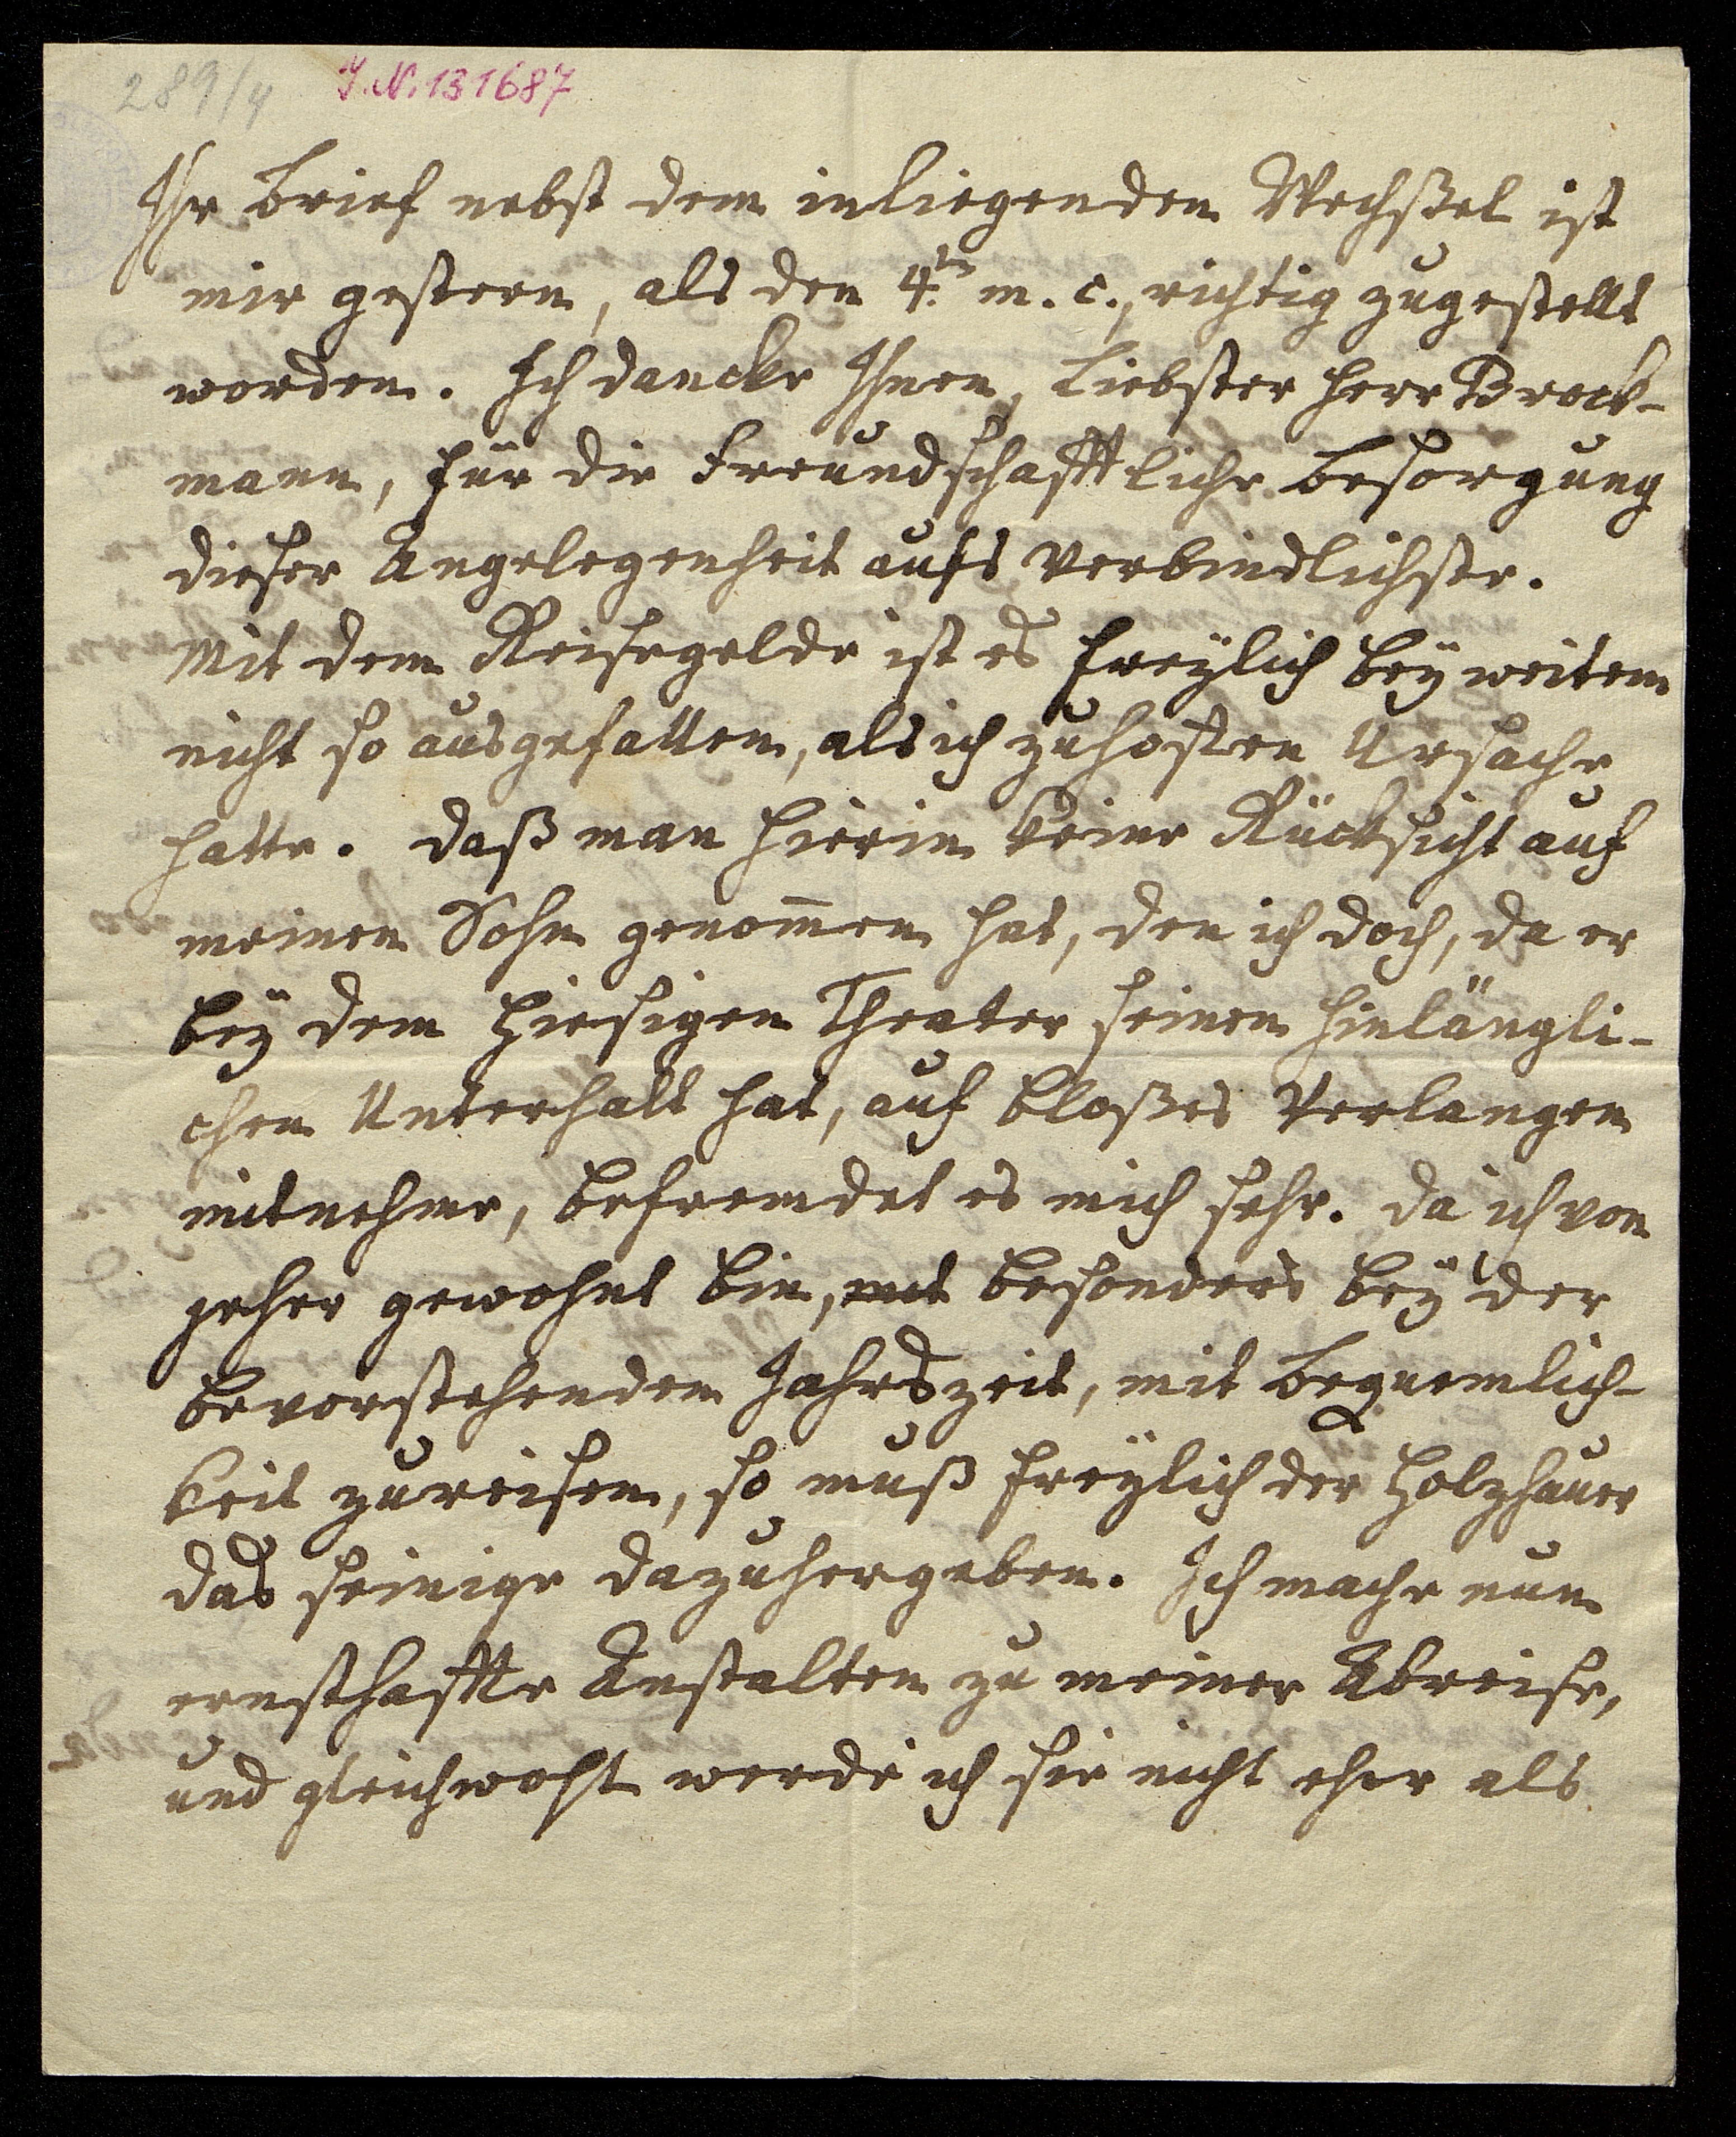 289/4 J.N. 131687
Ihr Brief nebst dem inliegenden Wechßel ist
mir gestern, als den 4.ten m. c., richtig zugestellt
worden. Ich dancke Ihnen, liebster Herr Brock-
mann, für die freundschafftliche Besorgung
dieser Angelegenheit aufs verbindlichste.
Mit dem Reisegelde ist es freÿlich beÿ weitem
nicht so ausgefallen, als ich zuhoffen Ursache
hatte. Daß man hierin keine Rücksicht auf
meinen Sohn genom̅en hat, den ich doch, da er
beÿ dem hiesigen Theater seinen hinlängli-
chen Unterhalt hat, auf bloßes Verlangen
mitnehme, befremdet es mich sehr. Da ich von
jeher gewohnt bin, besonders beÿ der
bevorstehenden Jahrszeit, mit Bequemlich-
keit zureisen, so muß freÿlich der Holzhauer
das seinige dazuhergeben. Ich mache nun
ernsthaffte Anstalten zu meiner Abreise,
und gleichwohl werde ich sie nicht eher als